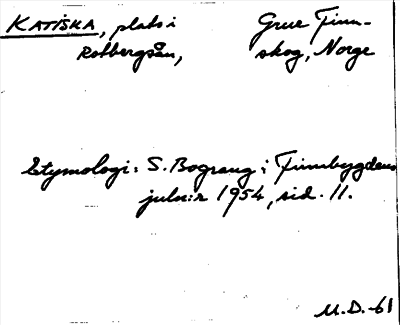 KATISKA, plats i Grue Finn-
Rotbergsån, skog, Norge
Etymologi: S. Bograng i Finnbygdens
julnr 1954, sid. 11.
M.D. -61